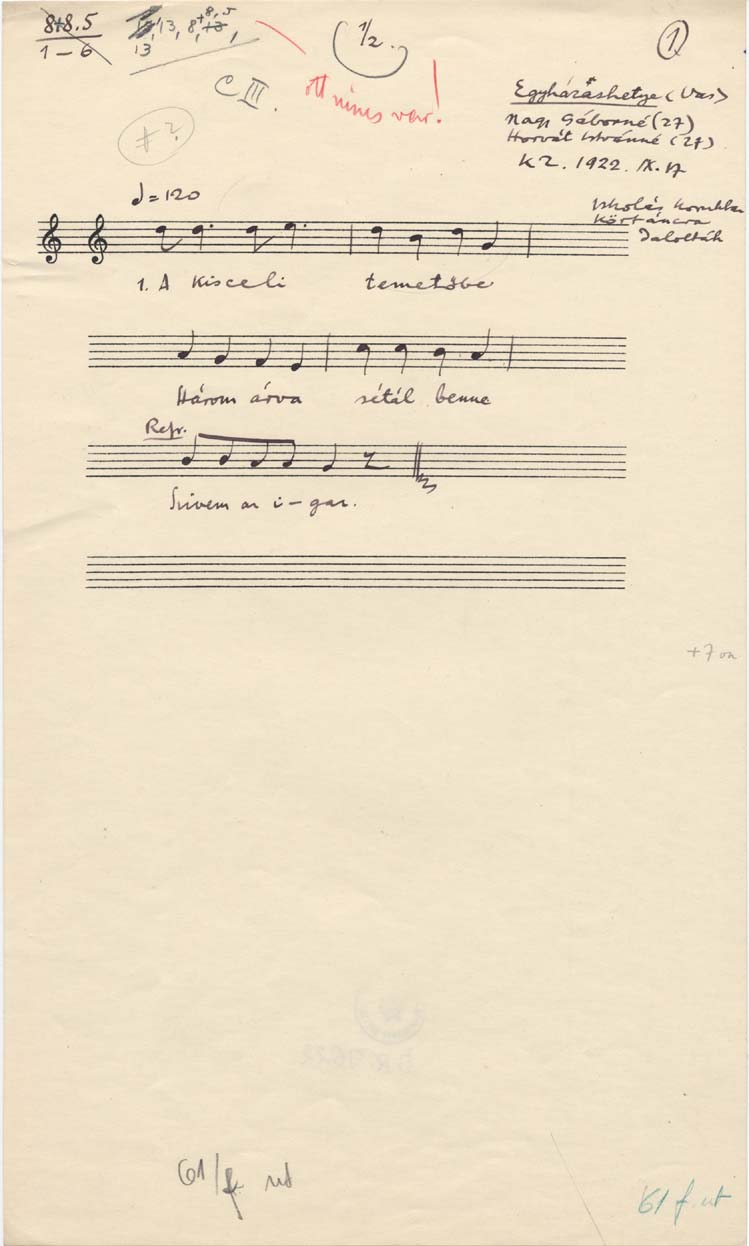 8+8.5
1-6
13, 8+8,5
13
1/2.
1
C III.
ott nincs var!
#?
Egyházashetye (Vas)
Nagy Gáborné (27)
Horvát Istvánné (27)
KZ. 1922. IX. 17
Iskolás korukban
Körtáncra
dalolták
♩=120
1. A Kisceli temetőbe
Három árva sétál benne
Refr.
Szivem az i-gaz.
+7 on
61/f ut
61 f. ut